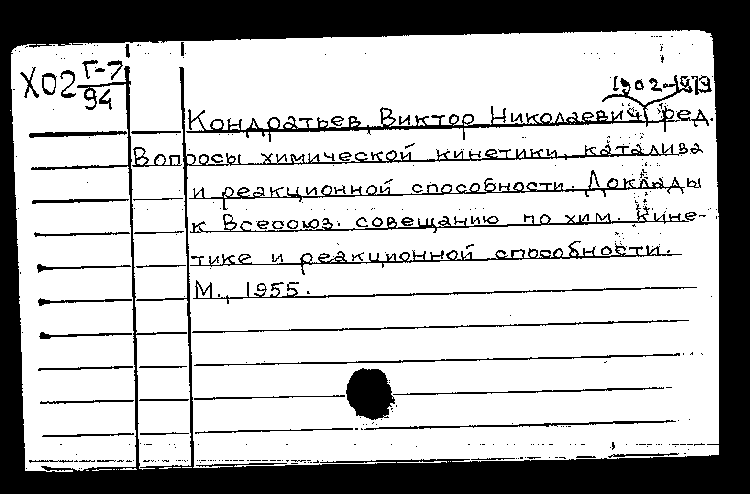 Х02 Г-7
94
1902-1979
Кондратьев, Виктор Николаевич, ред.
Вопросы химической кинетики, катализа
и реакционной способности. Доклады
к Всесоюз. совещанию по хим. кине-
тике и реакционной способности.
М., 1955.